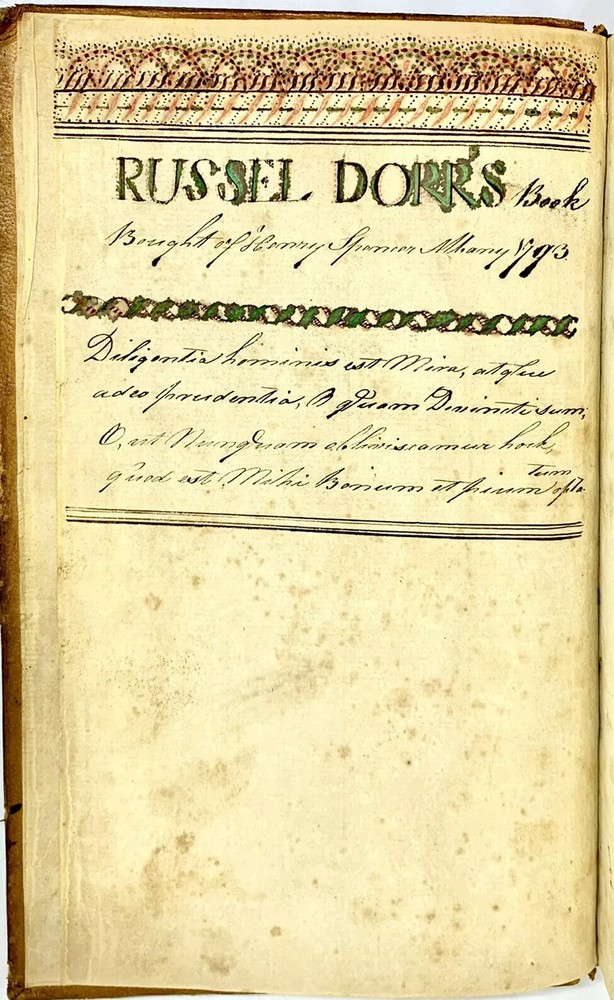 RUSSEL DORR'S Book
Bought of Henry Spencer Albany 1793
Diligentia hominis est Mira, atque
adeo prudentia, O quam Devincti sum,
O, ut Nunquam obliviscamur hoch,
quod est Mihi Bonum et pium opta
tum